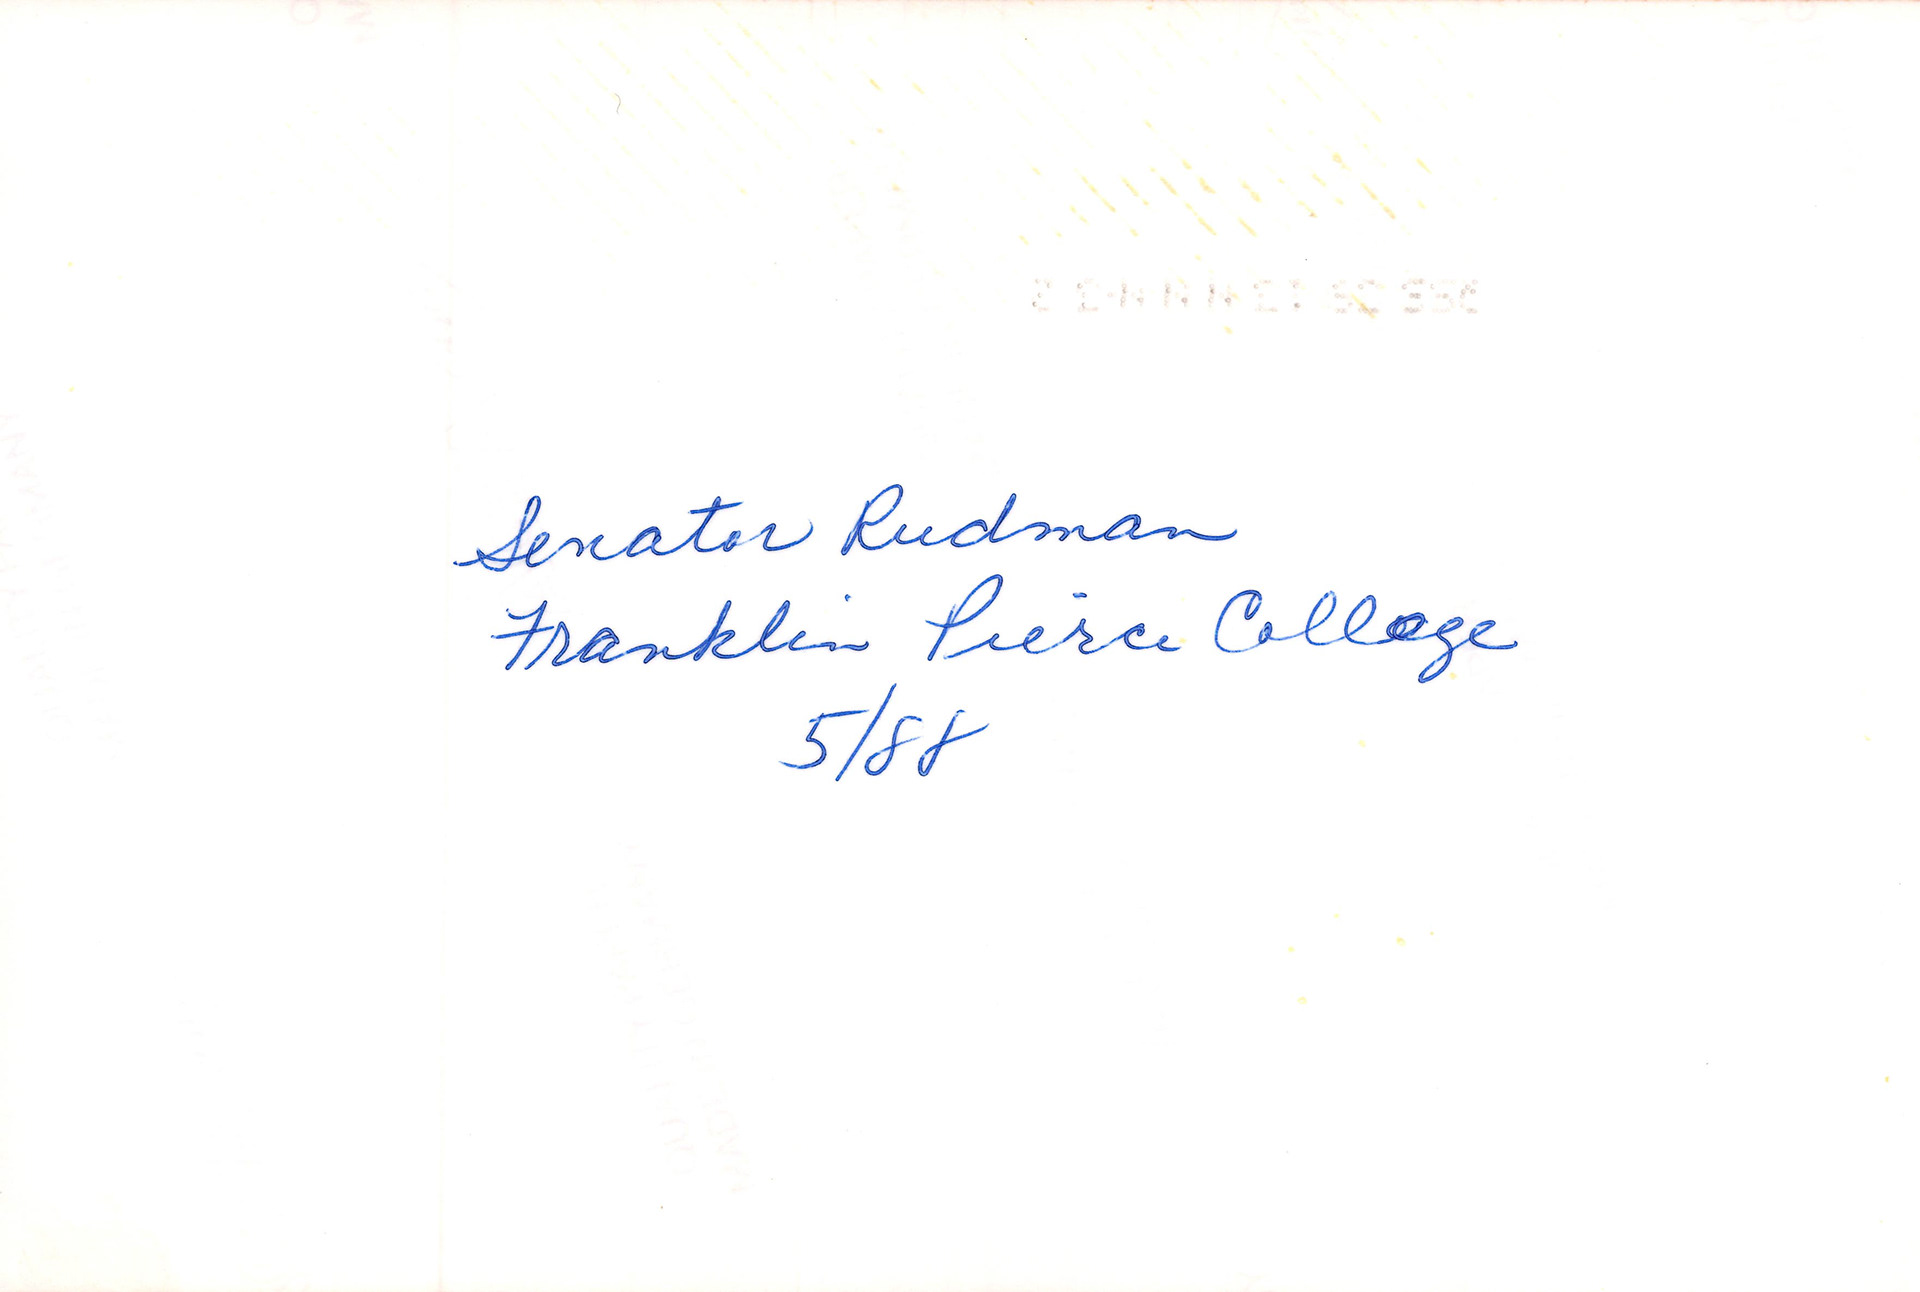 Senator Rudman
Franklin Pierce College
5/88